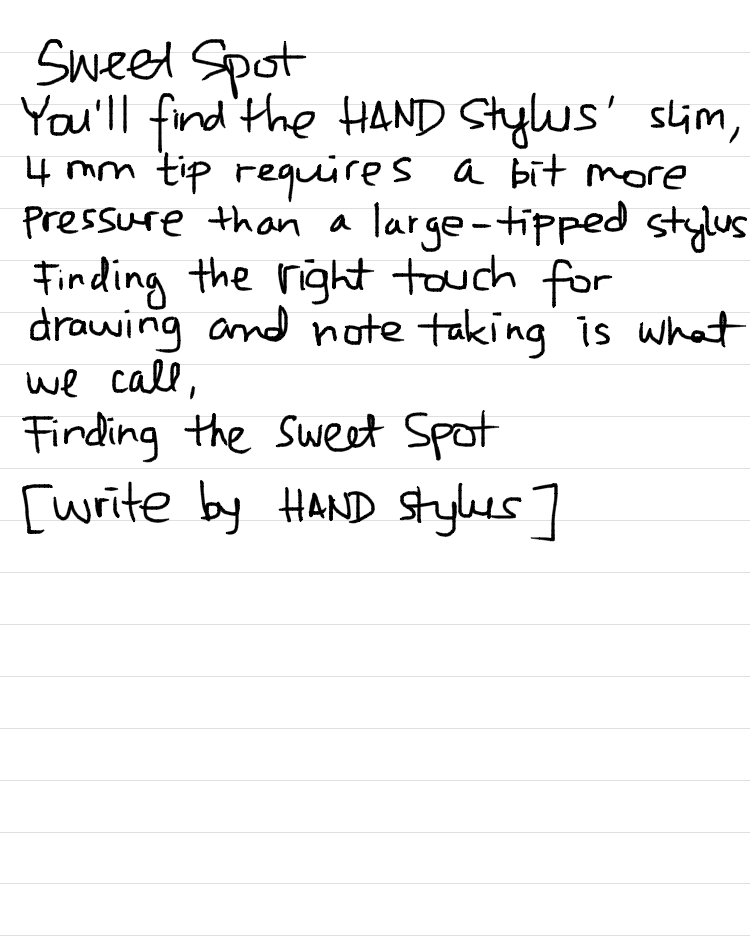 Sweet Spot
You'll find the HAND Stylus' slim,
4 mm tip requires a bit more
pressure than a large-tipped stylus
Finding the right touch for
drawing and note taking is what
we call,
Finding the Sweet Spot
[write by HAND stylus]